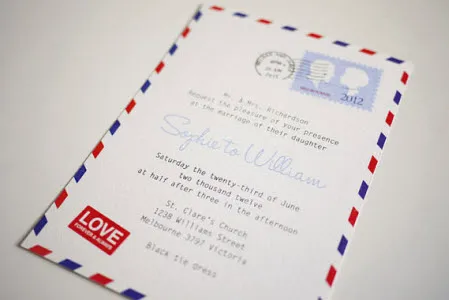 2012
Mr. & Mrs. Richardson
Request the pleasure of your presence
at the marriage of their daughter
Sophie to William
Saturday the twenty-third of June
two thousand twelve
at half after three in the afternoon
St. Clare's Church
1238 Williams Street
Melbourne 3797 Victoria
Black tie dress
LOVE
FOREVER & ALWAYS